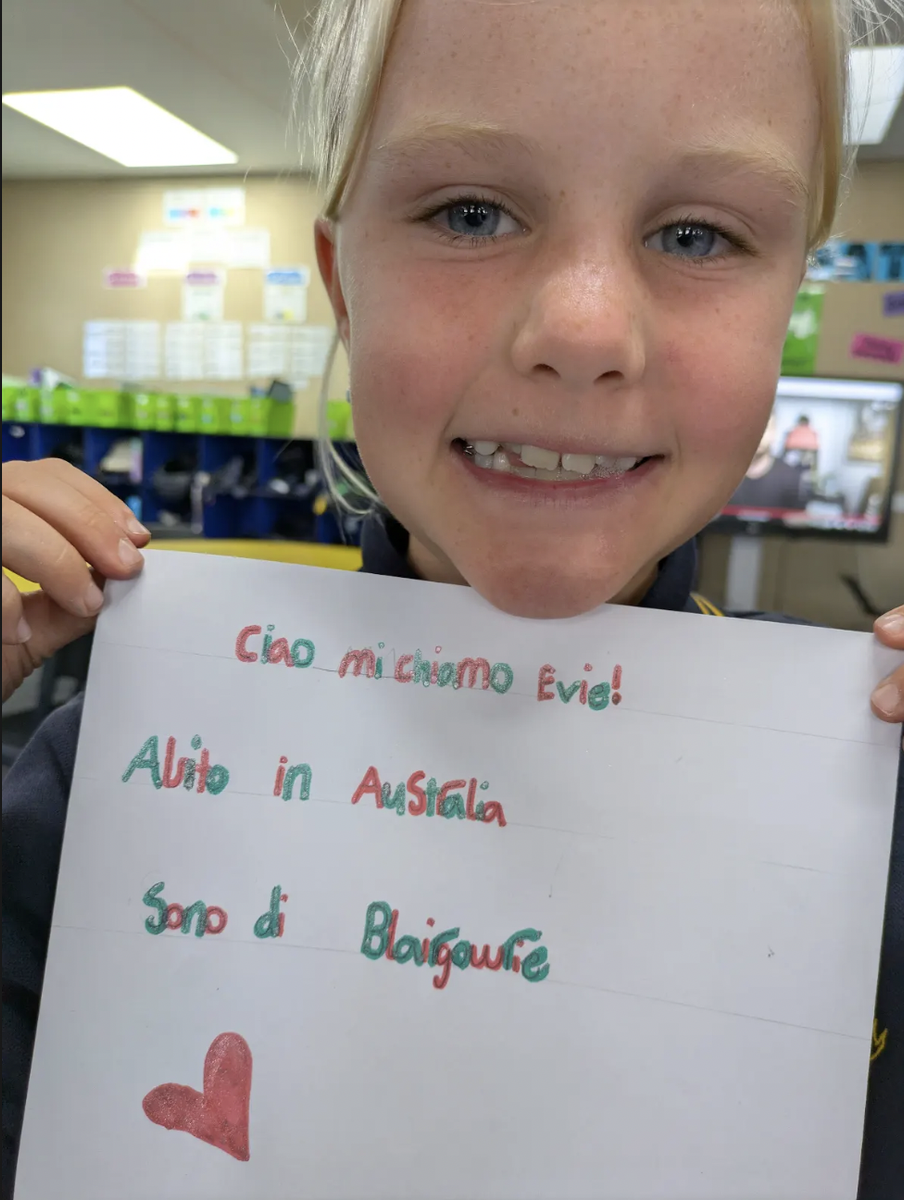 Ciao mi chiamo Evie!
Abito in Australia
Sono di Blairgowrie